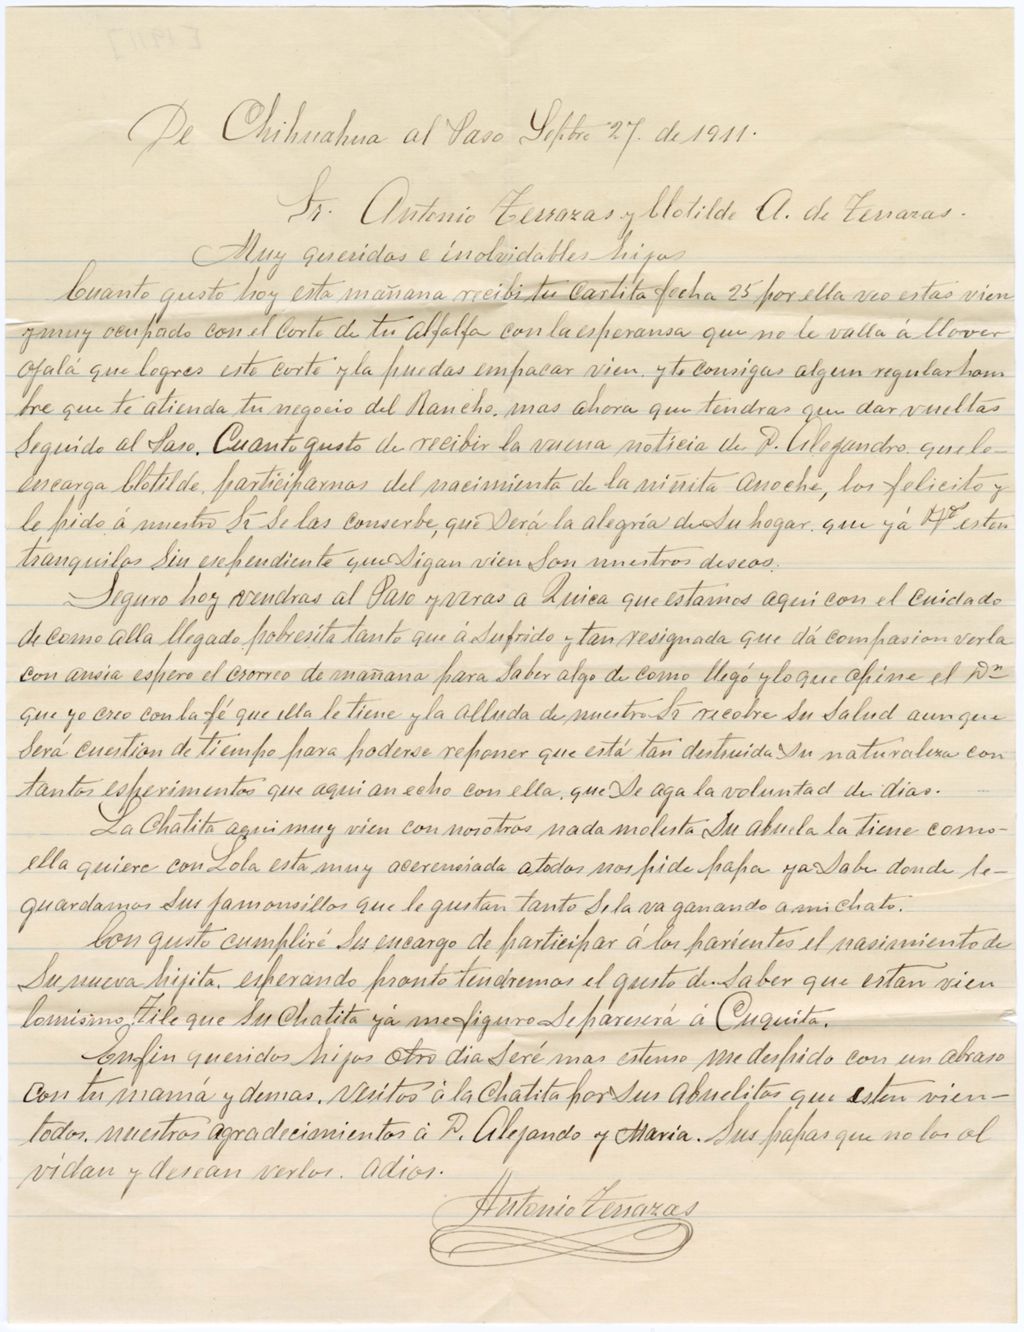 De Chihuahua al Paso Sepbre 27. de 1911.
Sr. Antonio Terrazas y Clotilde A. de Terrazas.
Muy queridos e inolvidables hijos
Cuanto gusto hoy esta mañana recibi tu cartita fecha 25 por ella veo estas vien
y muy ocupado con el corte de tu Alfalfa con la esperansa que no le valla á llover
ojalá que logres este corte y la puedas empacar vien. y te consigas algun regular hom
bre que te atienda tu negocio del Rancho. mas ahora que tendras que dar vueltas
seguido al Paso. Cuanto gusto de recibir la vuena noticia de D. Alejandro. que lo
encarga Clotilde. participarnos del nacimiento de la niñita anoche, los felicito y
le pido á nuestro Sr se las conserbe, que será la alegria de su hogar. que yá esten
tranquilos sin espendiente que sigan vien son nuestros deseos.
Seguro hoy vendras al Paso y veras a Quica que estamos aqui con el cuidado
de como alla llegado, pobresita tanto que á sufrido y tan resignada que dá compasion verla
con ansia espero el correo de mañana para saber algo de como llegó y lo que opine el Dr
que yo creo con la fé que ella le tiene y la alluda de nuestro Sr recobre su salud aunque
será cuestion de tiempo para poderse reponer que está tan destruida su naturaleza con
tantos esperimentos que aqui an echo con ella. que se aga la voluntad de dios.
La Chatita aqui muy vien con nosotros nada molesta su abuela la tiene como
ella quiere con Lola esta muy acerensiada a todos nos pide papa ya sabe donde le
guardamos sus jamonsillos que le gustan tanto se la va ganando a mi chato.
Con gusto cumpliré su encargo de participar á los parientes el nasimiento de
su nueva hijita. esperando pronto tendremos el gusto de saber que estan vien
lo mismo Tile que su chatita yá me figuro se pareserá á Cuquita.
En fin queridos hijos otro dia seré mas estenso me despido con un abraso
con tu mamá y demas. vesitos á la Chatita por sus abuelitos que esten vien
todos. nuestros agradecimientos á D. Alejando y Maria. Sus papas que no los ol
vidan y desean verlos. Adios.
Antonio Terrazas